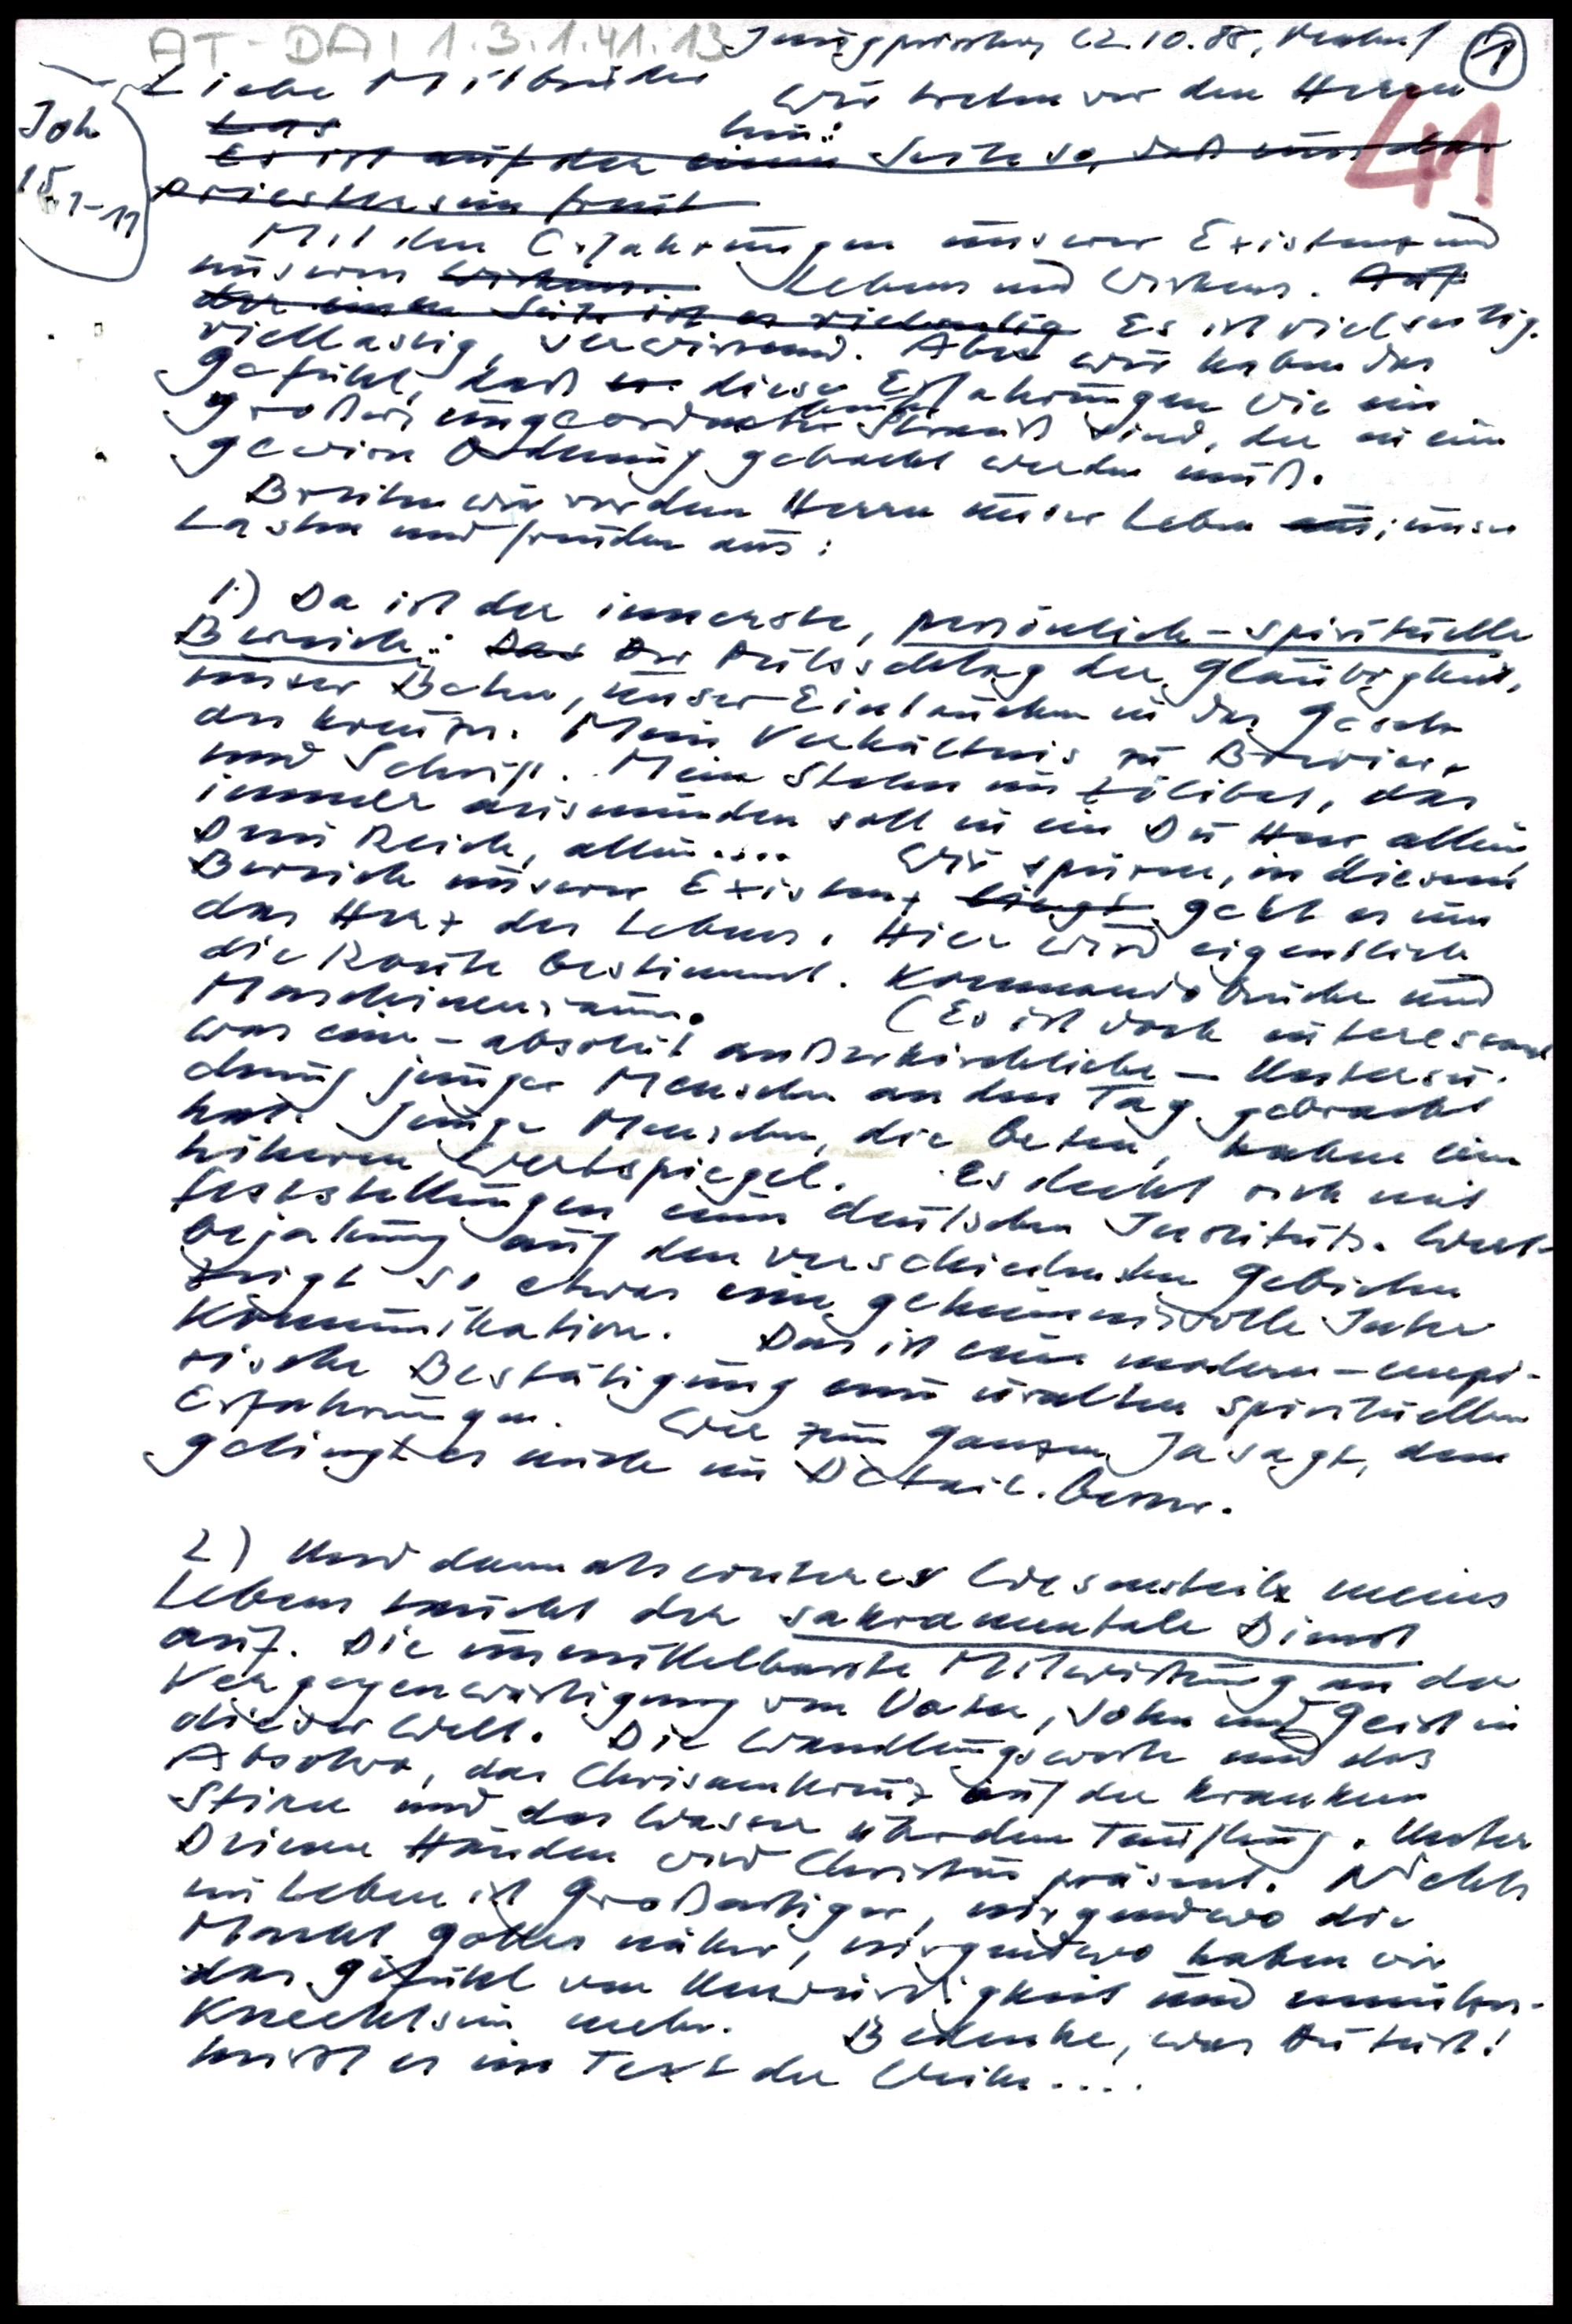 AT-DAI 1.3.1.41.13
12.10.88, ①
41
Joh
15, 1-11
Liebe Mitbrüder
Wir treten vor den Herrn
Das
hin:
Es ist auf der einen Seite so, daß uns das
Priestersein freut
Mit den Erfahrungen unserer Existenz und
unseres Wirkens. Lebens und Wirkens. Auf
der einen Seite ist es vielseitig Es ist vielseitig,
viellastig, verwirrend. Aber wir haben das
Gefühl, daß es diese Erfahrungen wie ein
großer, ungeordneter Strauß sind, der in eine
gewisse Ordnung gebracht werden muß.
Breiten wir vor dem Herrn unser Leben aus, unsere
Lasten und Freuden aus:
1.) Da ist der innerste, persönlich-spirituelle
Bereich: Das Der Pulsschlag der Gläubigkeit,
unser Beten, unser Eintauchen in das Gesetz
des Kreuzes. Mein Verhältnis zu Brevier
und Schrift. Mein Stehen im Zölibat, das
immer ausmünden soll in ein Du Herr allein
Dein Reich, allein.... Wir spüren, in diesem
Bereich unserer Existenz liegt geht es um
das Herz des Lebens. Hier wird eigentlich
die Route bestimmt. Kommandobrücke und
Maschinenraum. (Es ist doch interessant
was eine - absolut außerkirchliche - Untersu-
chung junger Menschen an den Tag gebracht
hat. Junge Menschen, die beten, haben einen
höheren Wertspiegel. Es deckt sich mit
Feststellungen eines deutschen Instituts. Wert-
bejahung auf den verschiedensten Gebieten
zeigt so etwas eine geheimnisvolle Inter
Kommunikation. Das ist eine modern-empi-
rische Bestätigung einer uralten spirituellen
Erfahrungen. Wer zum Ganzen Ja sagt, dem
gelingt es auch im Detail. besser.
2) Und dann als weiteres Wesensteil meines
Lebens taucht der sakramentale Dienst
auf. Die unmittelbarste Mitwirkung an der
Vergegenwärtigung von Vater, Sohn und Geist in
dieser Welt. Die Wandlungsworte und das
Absolvo, das Chrisamkreuz auf der kranken
Stirne und das Wasser über dem Täufling. Unter
Deinen Händen wird Christus präsent. Nichts
im Leben ist großartiger, nirgendwo die
Macht Gottes näher, nirgendwo haben wir
das Gefühl von Unwürdigkeit und unnützer-
Knechtsein mehr. Bedenke, was Du tust!
heißt es im Text der Weihe....